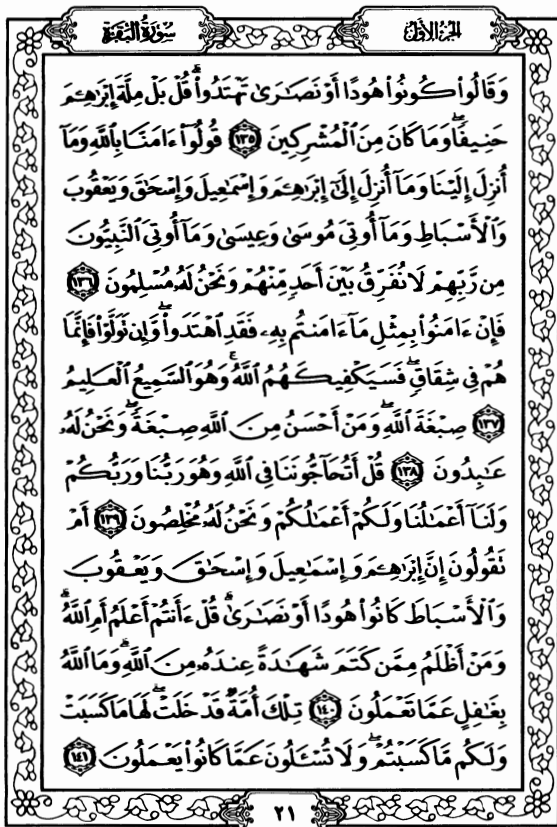 سُورَةُ البَقَرَةِ
الجُزءُ الأَوَّل
وَقَالُوا۟ كُونُوا۟ هُودًا أَوْ نَصَـٰرَىٰ تَهْتَدُوا۟ ۗ قُلْ بَلْ مِلَّةَ إِبْرَٰهِـۧمَ
حَنِيفًا ۖ وَمَا كَانَ مِنَ ٱلْمُشْرِكِينَ ١٣٥ قُولُوٓا۟ ءَامَنَّا بِٱللَّهِ وَمَآ
أُنزِلَ إِلَيْنَا وَمَآ أُنزِلَ إِلَىٰٓ إِبْرَٰهِـۧمَ وَإِسْمَـٰعِيلَ وَإِسْحَـٰقَ وَيَعْقُوبَ
وَٱلْأَسْبَاطِ وَمَآ أُوتِىَ مُوسَىٰ وَعِيسَىٰ وَمَآ أُوتِىَ ٱلنَّبِيُّونَ
مِن رَّبِّهِمْ لَا نُفَرِّقُ بَيْنَ أَحَدٍ مِّنْهُمْ وَنَحْنُ لَهُۥ مُسْلِمُونَ ١٣٦
فَإِنْ ءَامَنُوا۟ بِمِثْلِ مَآ ءَامَنتُم بِهِۦ فَقَدِ ٱهْتَدَوا۟ ۖ وَّإِن تَوَلَّوْا۟ فَإِنَّمَا
هُمْ فِى شِقَاقٍ ۖ فَسَيَكْفِيكَهُمُ ٱللَّهُ ۚ وَهُوَ ٱلسَّمِيعُ ٱلْعَلِيمُ
١٣٧ صِبْغَةَ ٱللَّهِ ۖ وَمَنْ أَحْسَنُ مِنَ ٱللَّهِ صِبْغَةً ۖ وَنَحْنُ لَهُۥ
عَـٰبِدُونَ ١٣٨ قُلْ أَتُحَآجُّونَنَا فِى ٱللَّهِ وَهُوَ رَبُّنَا وَرَبُّكُمْ
وَلَنَآ أَعْمَـٰلُنَا وَلَكُمْ أَعْمَـٰلُكُمْ وَنَحْنُ لَهُۥ مُخْلِصُونَ ١٣٩ أَمْ
تَقُولُونَ إِنَّ إِبْرَٰهِـۧمَ وَإِسْمَـٰعِيلَ وَإِسْحَـٰقَ وَيَعْقُوبَ
وَٱلْأَسْبَاطَ كَانُوا۟ هُودًا أَوْ نَصَـٰرَىٰ ۗ قُلْ ءَأَنتُمْ أَعْلَمُ أَمِ ٱللَّهُ ۗ
وَمَنْ أَظْلَمُ مِمَّن كَتَمَ شَهَـٰدَةً عِندَهُۥ مِنَ ٱللَّهِ ۗ وَمَا ٱللَّهُ
بِغَـٰفِلٍ عَمَّا تَعْمَلُونَ ١٤٠ تِلْكَ أُمَّةٌ قَدْ خَلَتْ ۖ لَهَا مَا كَسَبَتْ
وَلَكُم مَّا كَسَبْتُمْ ۖ وَلَا تُسْـَٔلُونَ عَمَّا كَانُوا۟ يَعْمَلُونَ ١٤١
٢١